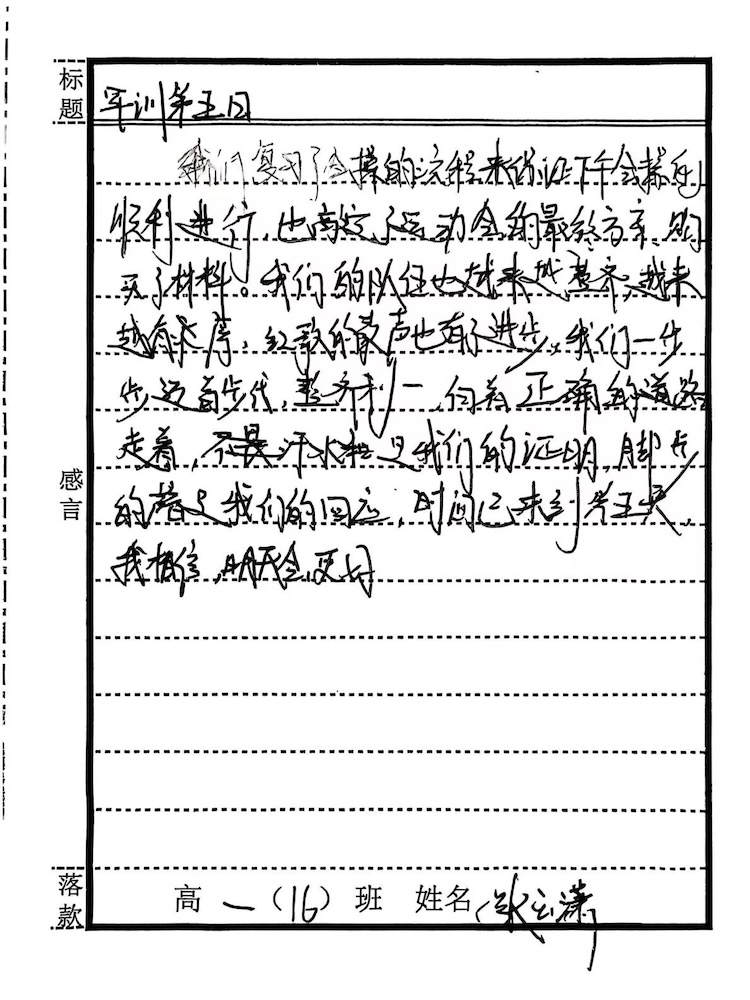 标题
军训第五日
我们复习了会操的流程来保证下午会操的
顺利进行,也商定了运动会的最终方案,购
买了材料。我们的队伍也越来越整齐,越来
越有长度;红歌的歌声也有了进步。我们一步
步迈着步伐,整齐利一,向着正确的道路
走着,汗水是我们的证明,脚步
的声是我们的回应,时间已来到第五天,
我相信,明天会更好
感言
落款
高一(16)班 姓名